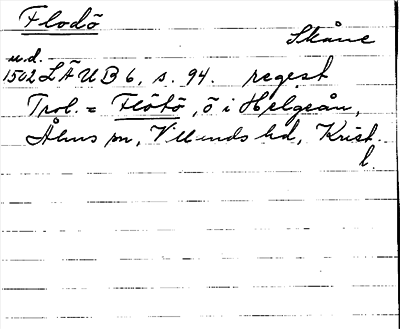 Flodö
Skåne
u.d.
1502 LÄUB 6, s. 94. regest
Trol. = Flötö, ö i Helgeån,
Åhus sn, Villands hd, Krist.
l.